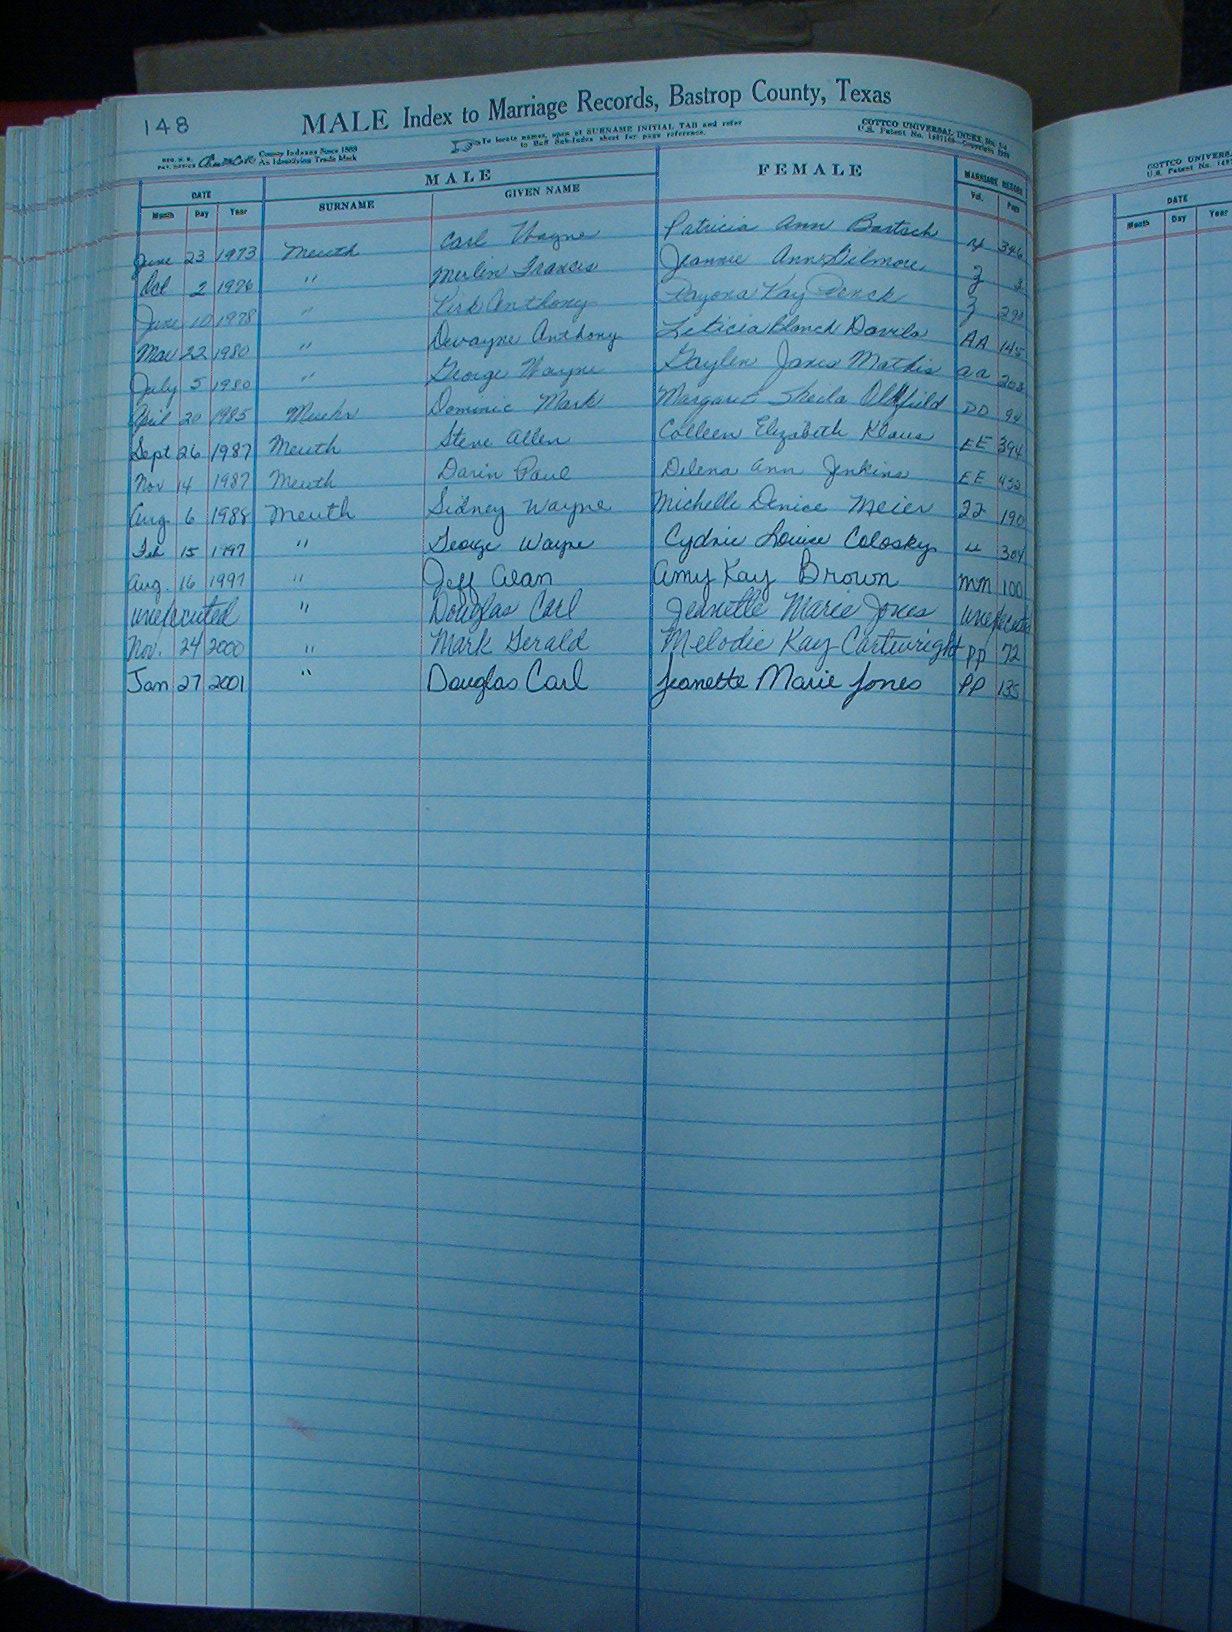 148
MALE Index to Marriage Records, Bastrop County, Texas
To locate names, open at SURNAME INITIAL TAB and refer
to Red Sub-Index sheet for page reference.
COTTCO UNIVERSAL INDEX,
U.S. Patent No.
County Indexes Since 1888
An Identifying Trade Mark
DATE MALE FEMALE MARRIAGE RECORD
Month Day Year SURNAME GIVEN NAME Vol. Page
June 23 1973 Meuth Carl Wayne Patricia Ann Bartsch 346
Oct 2 1976 " Merlin Francis Jeannie Ann Gilmore Z 3
June 10 1978 " Kirk Anthony Kay Z 290
Mar 22 1980 " Dewayne Anthony Leticia Blanch Davila AA 145
July 5 1980 " George Wayne Gaylen Janis Mathis aa 203
April 20 1985 Dominic Mark Margaret Sheila Oldfield DD 94
Sept 26 1987 Meuth Steve Allen Colleen Elizabeth Klaus EE 394
Nov 14 1987 Meuth Darin Paul Delena Ann Jenkins EE 452
Aug 6 1988 Meuth Sidney Wayne Michelle Denice Meier 190
Feb 15 1997 " George Wayne Cydnie Louise Colosky LL 304
Aug. 16 1997 " Jeff Alan Amy Kay Brown mm 100
unexecuted " Douglas Carl Jeanette Marie Jones unexecuted
Nov. 24 2000 " Mark Gerald Melodie Kay Cartwright PP 72
Jan 27 2001 " Douglas Carl Jeanette Marie Jones PP 135
COTTCO UNIVERSAL
U.S. Patent No.
DATE
Month Day Year